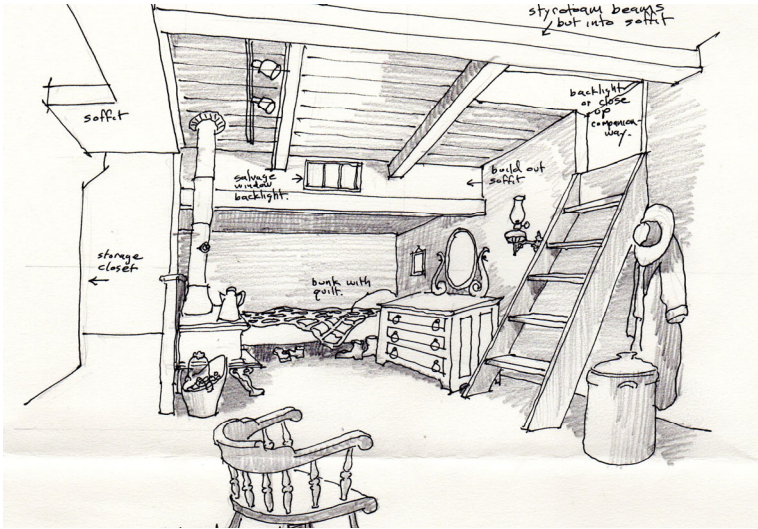 styrofoam beams
but into soffit
soffit
backlight
or close
up
companion-
way.
salvage
window
backlight.
build out
soffit
storage
closet
bunk with
quilt.